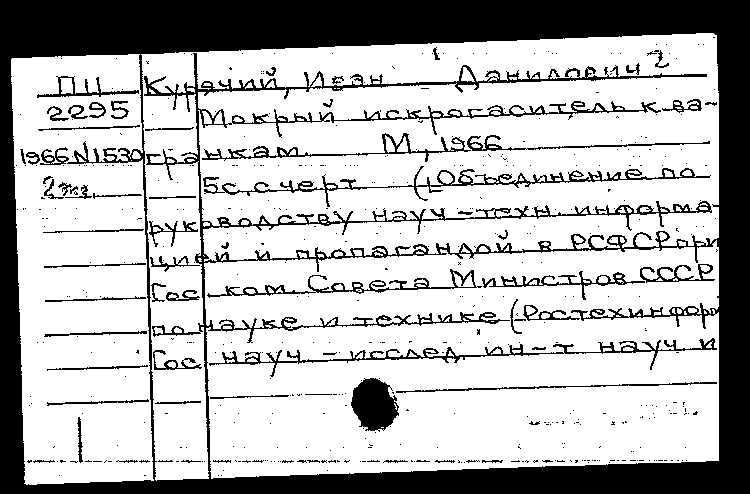 ПЦ Курячий, Иван Данилович 2
2295 Мокрый искрогаситель к ва-
1966 N 1530 гранкам. М, 1966
2 экз. 5с. с черт. (Объединение по
руководству науч-техн. информа-
цией и пропагандой в РСФСР при
Гос ком. Совета Министров СССР
по науке и технике (Ростехинформ
Гос науч-исслед. ин-т науч и